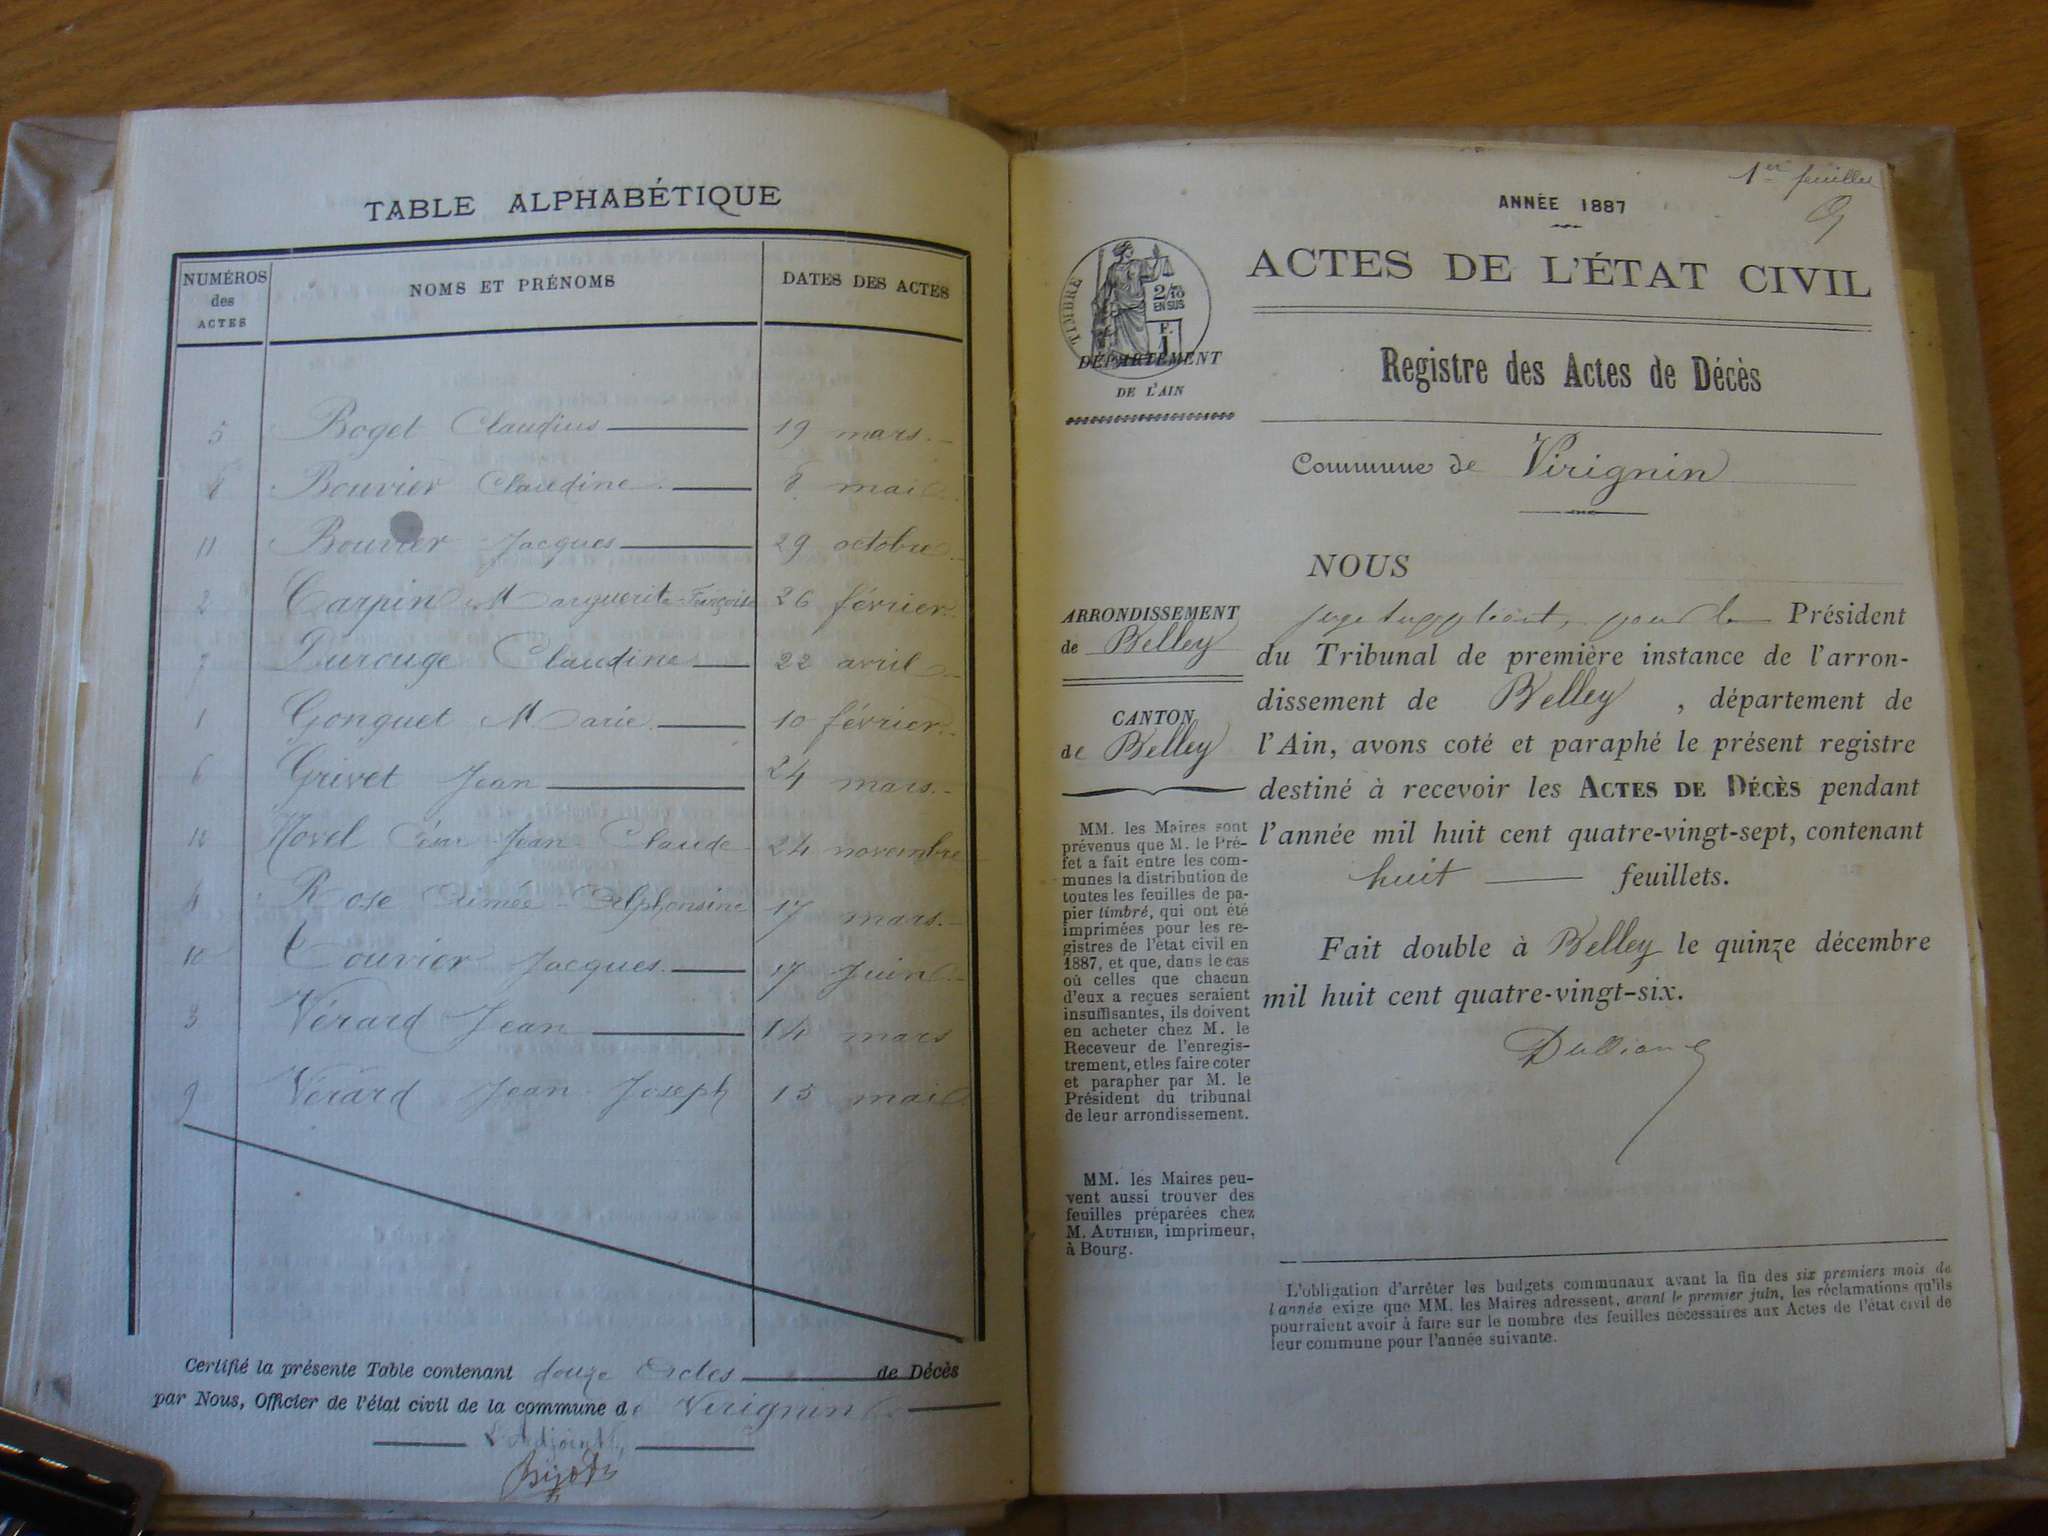 TABLE ALPHABÉTIQUE
NUMÉROS des ACTES NOMS ET PRÉNOMS DATES DES ACTES
5 Boget Claudius 19 mars
8 Bouvier Claudine 8 mai
11 Bouvier Jacques 29 octobre
2 Carpin Marguerite-Françoise 26 février
7 Durouge Claudine 22 avril
1 Gonguet Marie 10 février
6 Grivet Jean 24 mars
12 Jean-Claude 24 novembre
4 Rose Aimée-Alphonsine 17 mars
10 Jacques 17 juin
3 Vérard Jean 14 mars
9 Vérard Jean-Joseph 15 mai
Certifié la présente Table contenant douze Actes de Décès
par Nous, Officier de l'état civil de la commune de Virignin
L'Adjoint,
1er feuillet
ANNÉE 1887
ACTES DE L'ÉTAT CIVIL
TIMBRE
2/10
EN SUS
F.
1
DÉPARTEMENT
DE L'AIN
Registre des Actes de Décès
Commune de Virignin
ARRONDISSEMENT
de Belley
CANTON
de Belley
MM. les Maires sont
prévenus que M. le Pré-
fet a fait entre les com-
munes la distribution de
toutes les feuilles de pa-
pier timbré, qui ont été
imprimées pour les re-
gistres de l'état civil en
1887, et que, dans le cas
où celles que chacun
d'eux a reçues seraient
insuffisantes, ils doivent
en acheter chez M. le
Receveur de l'enregis-
trement, et les faire coter
et parapher par M. le
Président du tribunal
de leur arrondissement.
MM. les Maires peu-
vent aussi trouver des
feuilles préparées chez
M. AUTHIER, imprimeur,
à Bourg.
NOUS
juge suppléant, pour le Président
du Tribunal de première instance de l'arron-
dissement de Belley, département de
l'Ain, avons coté et paraphé le présent registre
destiné à recevoir les ACTES DE DÉCÈS pendant
l'année mil huit cent quatre-vingt-sept, contenant
huit feuillets.
Fait double à Belley le quinze décembre
mil huit cent quatre-vingt-six.
L'obligation d'arrêter les budgets communaux avant la fin des six premiers mois de
l'année exige que MM. les Maires adressent, avant le premier juin, les réclamations qu'ils
pourraient avoir à faire sur le nombre des feuilles nécessaires aux Actes de l'état civil de
leur commune pour l'année suivante.